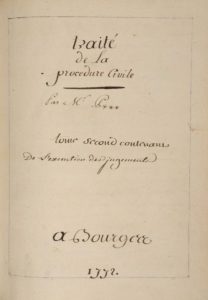 traité
de la
procedure Civile
Par Mr. P***
tome second contenant
De l'execution des jugements
a Bourges
1772.